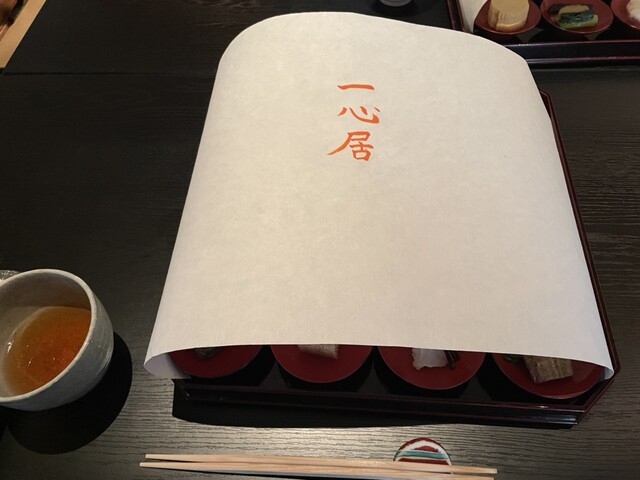 一心居